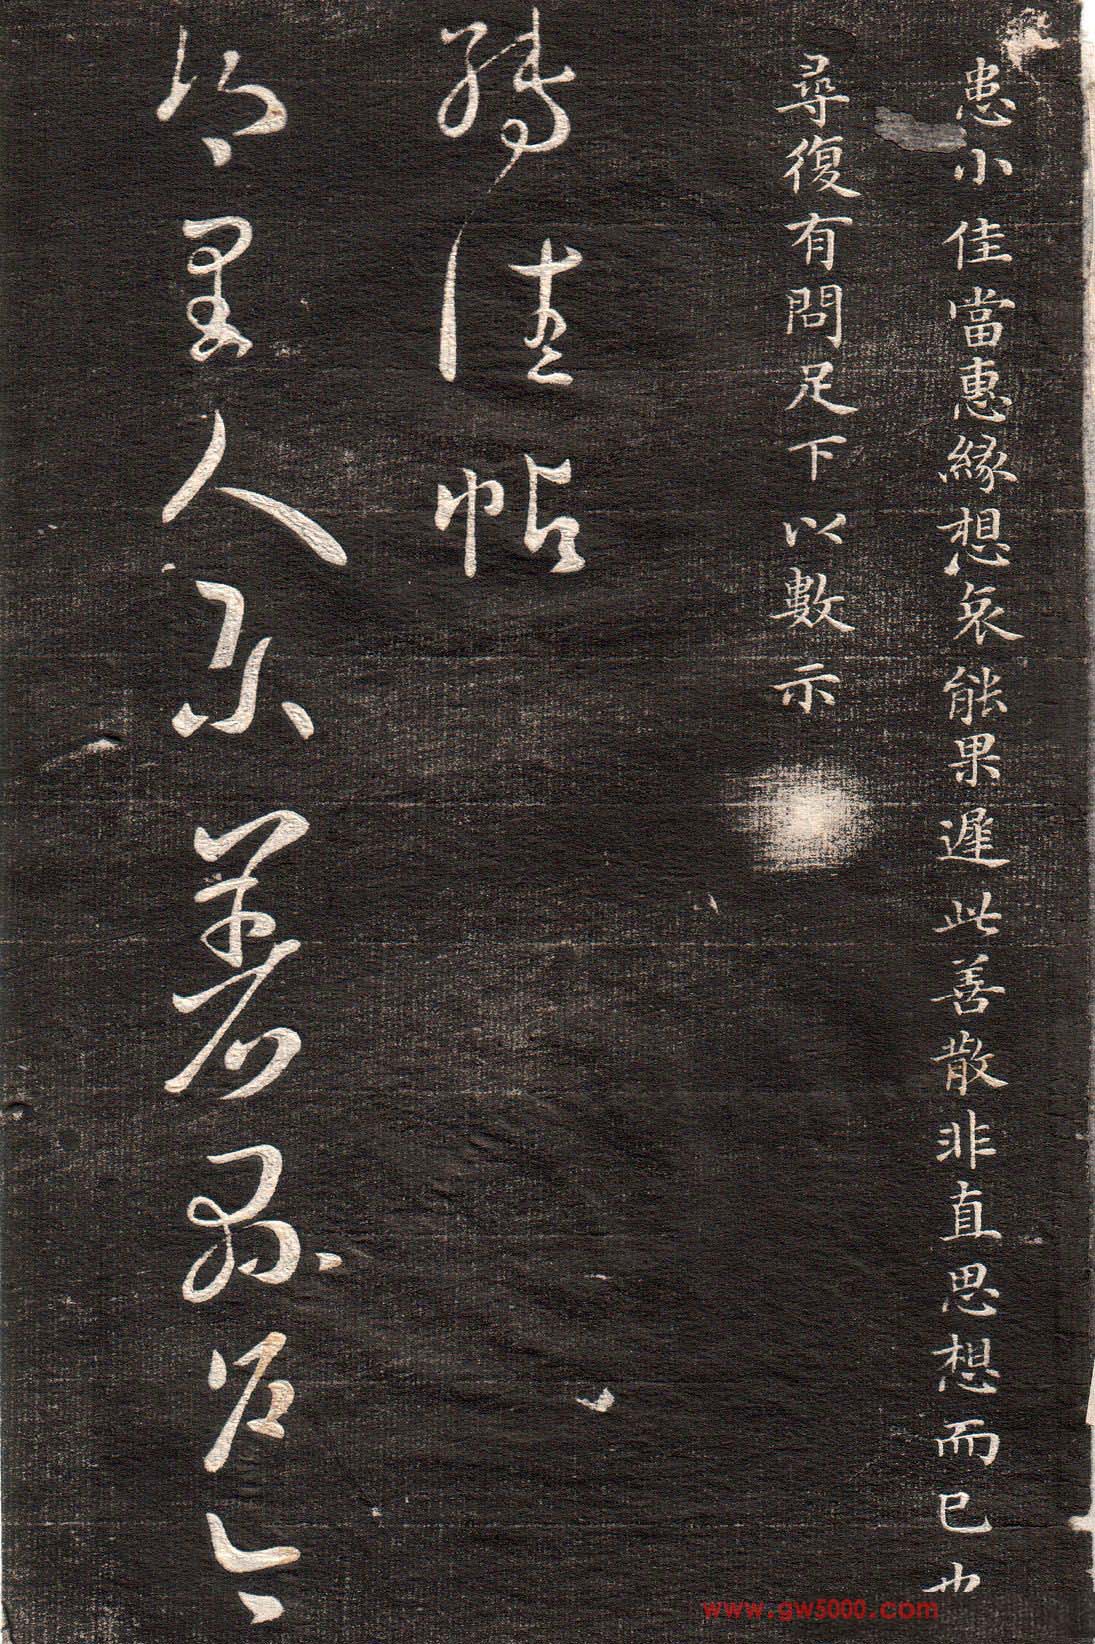 患小佳當惠緣想哀能果遲此善散非直思想而已也
尋復有問足下以數示
轉佳帖
鄉里人
www.gw5000.com